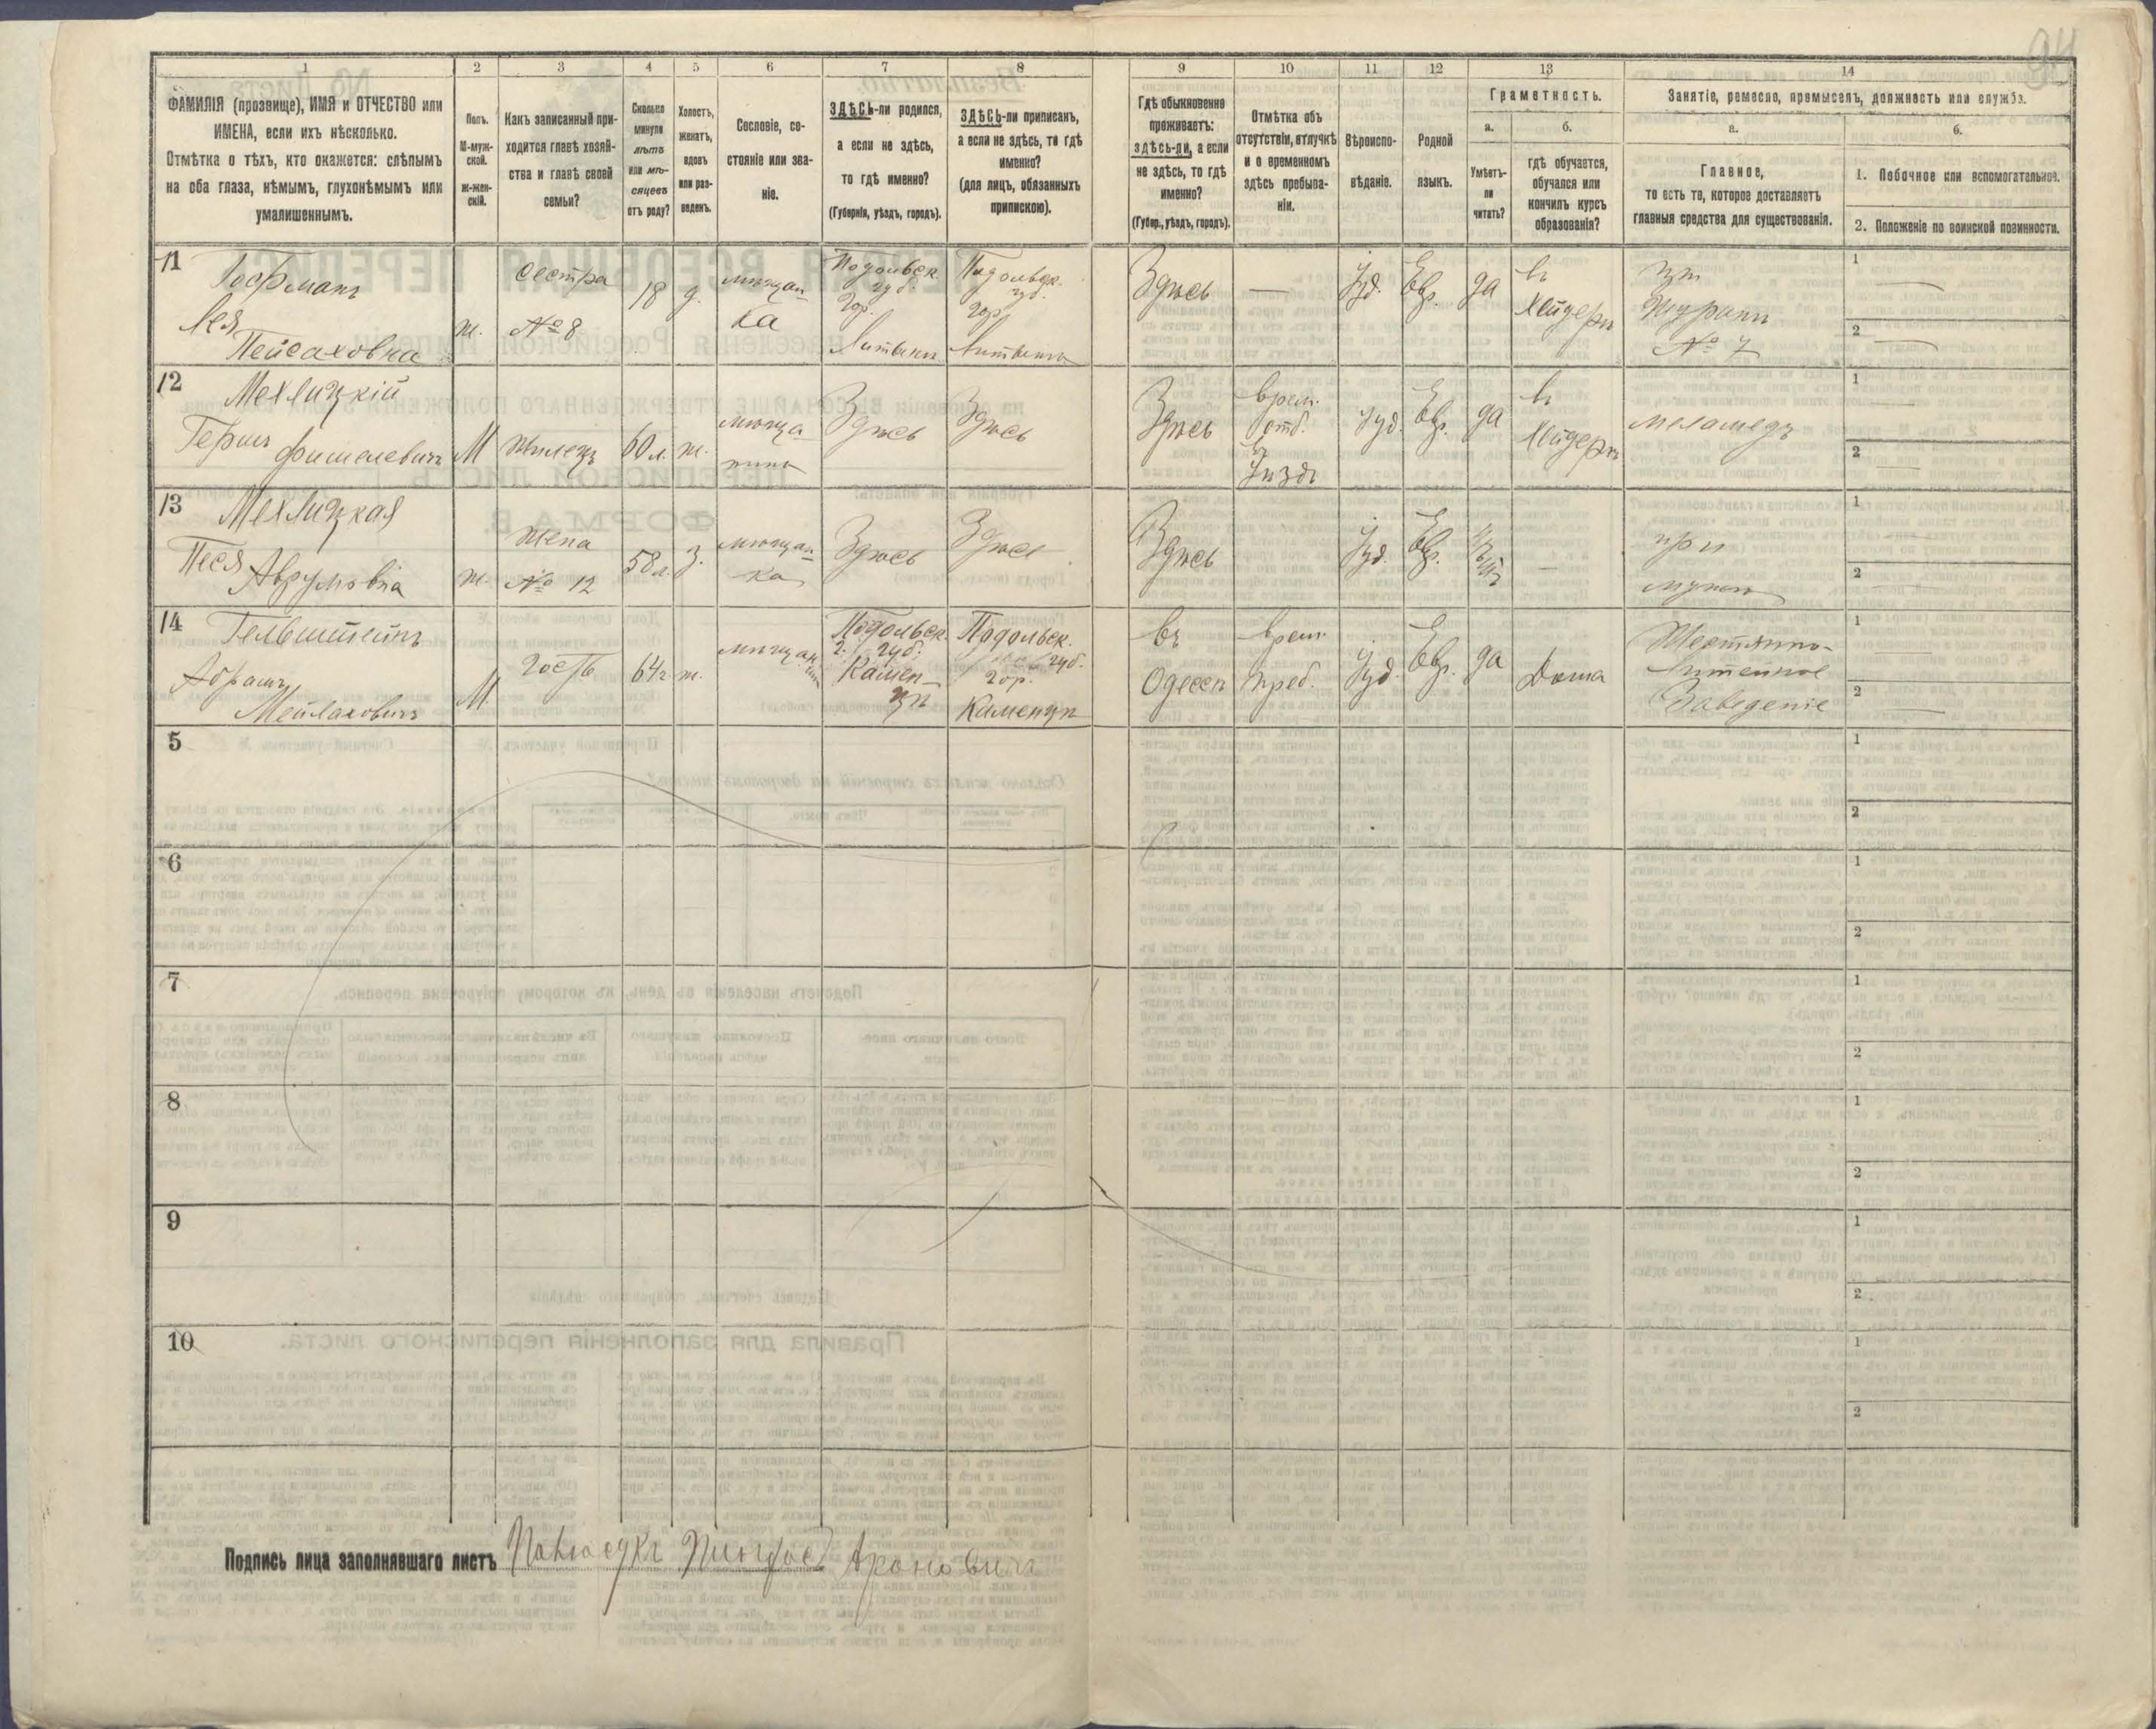 94
1
2
3
4
5
6
7
8
9
10
11
12
13
14
ФАМИЛІЯ (прозвище), ИМЯ и ОТЧЕСТВО или
ИМЕНА, если ихъ нѣсколько.
Отмѣтка о тѣхъ, кто окажется: слѣпымъ
на оба глаза, нѣмымъ, глухонѣмымъ или
умалишеннымъ.
Полъ.
М-муж-
ской.
Ж-жен-
скій.
Какъ записанный при-
ходится главѣ хозяй-
ства и главѣ своей
семьи?
Сколько
минуло
лѣтъ
или мѣ-
сяцевъ
отъ роду?
Холостъ,
женатъ,
вдовъ
или раз-
веденъ.
Сословіе, со-
стояніе или зва-
ніе.
ЗДѢСЬ-ли родился,
а если не здѣсь,
то гдѣ именно?
(Губернія, уѣздъ, городъ).
ЗДѢСЬ-ли приписанъ,
а если не здѣсь, то гдѣ
именно?
(для лицъ, обязанныхъ
припискою).
Гдѣ обыкновенно
проживаетъ:
здѣсь-ли, а если
не здѣсь, то гдѣ
именно?
(Губер., уѣздъ, городъ).
Отмѣтка объ
отсутствіи, отлучкѣ
и о временномъ
здѣсь пребыва-
ніи.
Вѣроиспо-
вѣданіе.
Родной
языкъ.
Грамотность.
а.
Умѣетъ-
ли
читать?
б.
гдѣ обучается,
обучался или
кончилъ курсъ
образованія?
Занятіе, ремесло, промыселъ, должность или служба.
а.
Главное,
то есть то, которое доставляетъ
главныя средства для существованія.
б.
1. Побочное или вспомогательное.
2. Положеніе по воинской повинности.
11
Гофманъ
Лея
Пейсаховна
ж.
сестра
№ 8
18
д.
мѣщан-
ка
Подольск.
губ.
гор.
Литинъ
Подольск.
губ.
гор.
Литинъ
Здѣсь
—
Іуд.
Евр.
да
въ
Хейдерѣ
при
№ 7
1 —
2 —
12
Мехлицкій
Гершъ Фишелевичъ
М
Жилецъ
60 л.
ж.
мѣща-
нинъ
Здѣсь
Здѣсь
Здѣсь
врем.
отб.
въ
Уѣздъ
Іуд.
Евр.
да
въ
Хейдерѣ
меламедъ
1 —
2 —
13
Мехлицкая
Песя
Аврумовна
ж.
жена
№ 12
58 л.
З.
мѣщан-
ка
Здѣсь
Здѣсь
Здѣсь
Іуд.
Евр.
нѣтъ
—
при
мужѣ
1 —
2 —
14
Гельштейнъ
Абрамъ
Мейлаховичъ
М.
Гость
64 г.
ж.
мѣщанинъ
Подольск.
г. губ.
Камен-
цѣ
Подольск.
губ.
гор.
Каменцѣ
въ
Одессѣ
врем.
преб.
Іуд.
Евр.
да
Дома
Жестянно-
Литейное
Заведеніе
1 —
2 —
5
1
2
6
1
2
7
1
2
8
1
2
9
1
2
10
1
2
Подпись лица заполнявшаго листъ
Ароновичъ